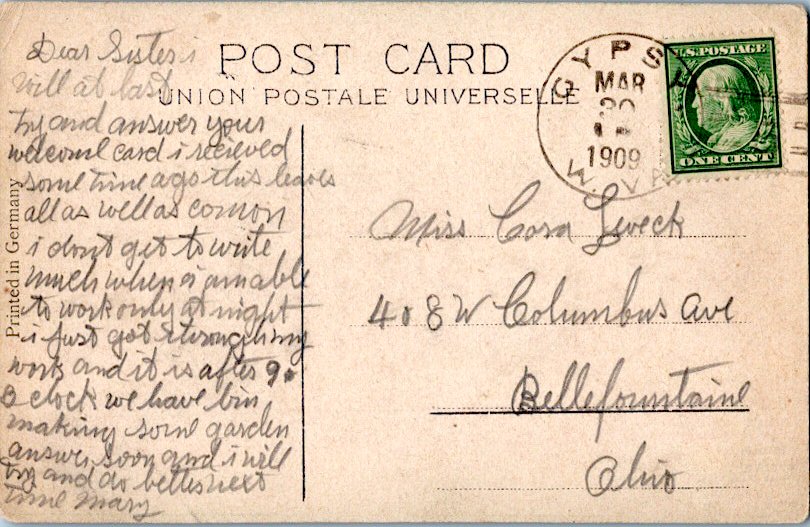 POST CARD
UNION POSTALE UNIVERSELLE
Dear Sister i
will at last
try and answer your
welcome card i recieved
some time ago this leaves
all as well as comon
i dont get to write
much when i am able
to work only at night
i just got through my
work and it is after 9
o clock we have bin
making some garden
answer soon and i will
try and do better next
time Mary
Printed in Germany
GYPSY
MAR
30
1909
W. VA
U.S. POSTAGE
ONE CENT
Miss Cora
408 W Columbus Ave
Bellefountaine
Ohio